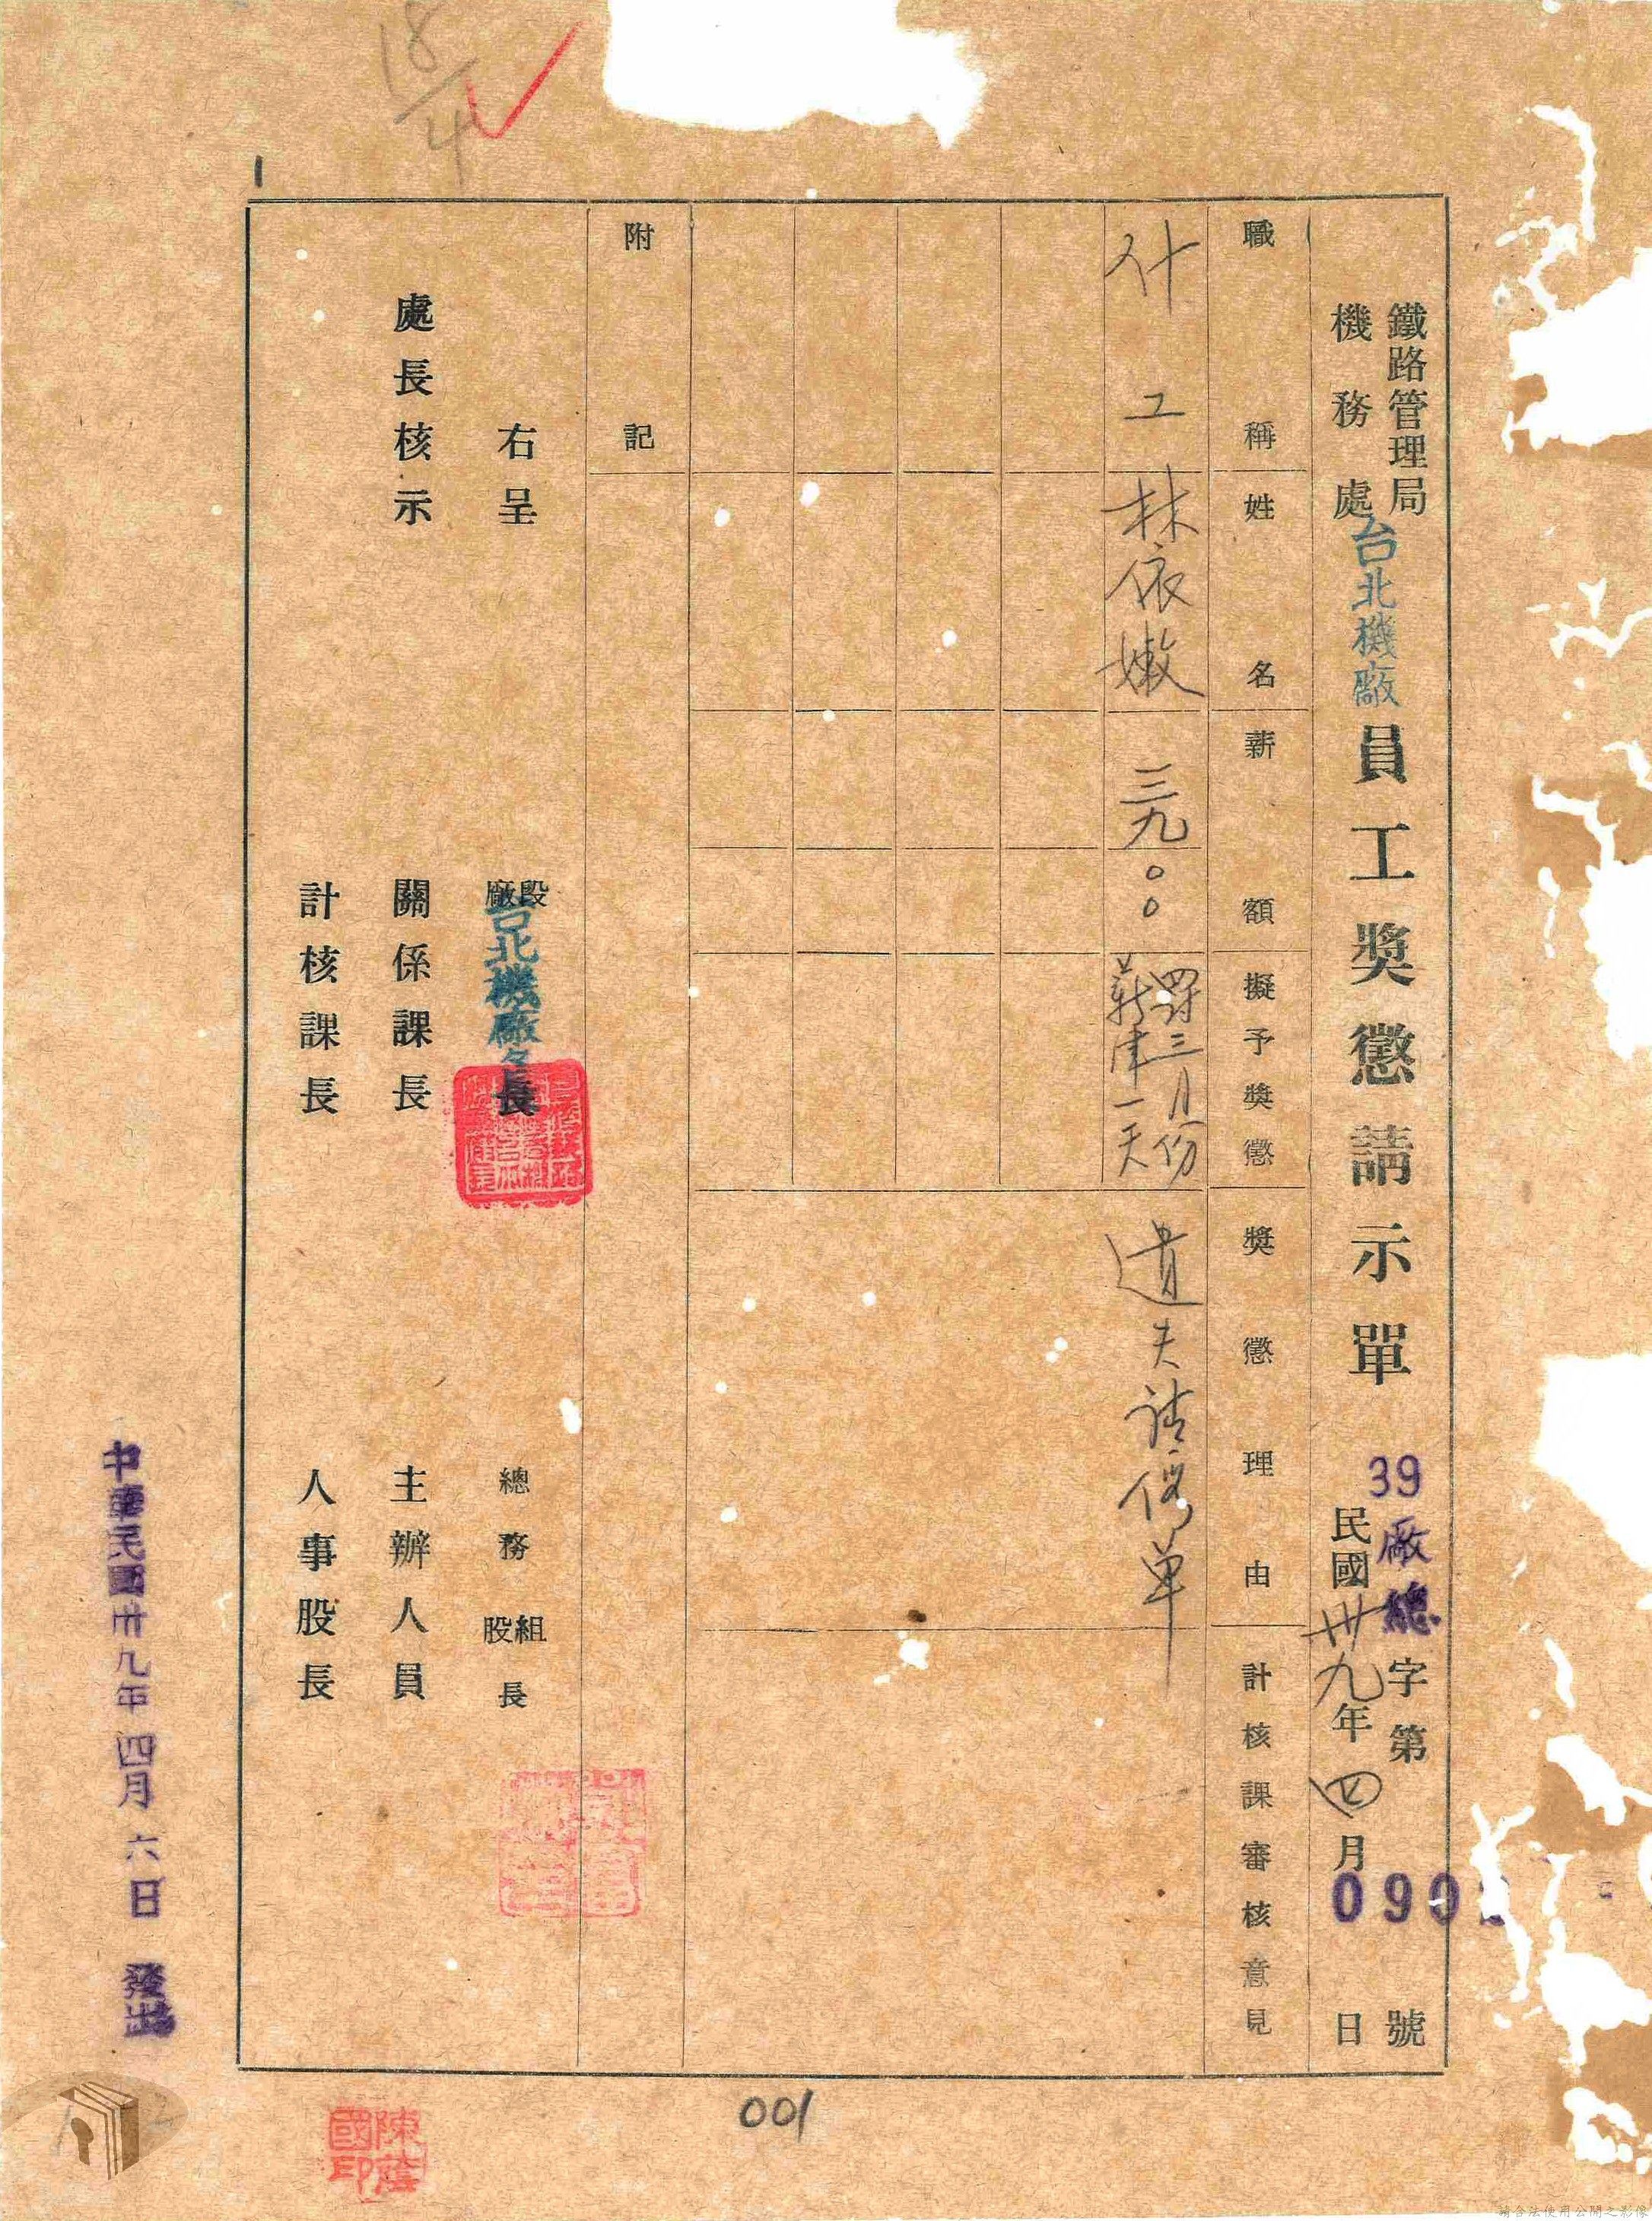 18/4
鐵路管理局
機務處
台北機廠
員工獎懲請示單
39廠總字第090號
民國卅九年四月日
職稱
姓名
薪額
擬予獎懲
獎懲理由
計核課審核意見
什工
林依嫩
三九〇〇
罰三月份
薪津一天
遺失請修单
附記
右呈
處長核示
段廠
台北機廠々長
關係課長
計核課長
總務組股長
主辦人員
人事股長
中華民國卅九年四月六日發出
陳蔭國印
001
請合法使用公開之影像